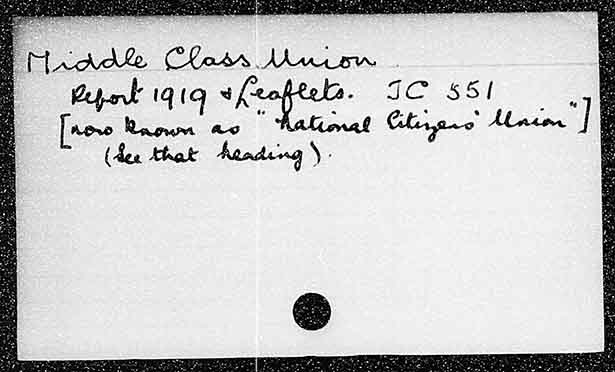 Middle Class Union.
Report 1919 & Leaflets. JC 551
[now known as "National Citizens' Union"]
(See that heading).